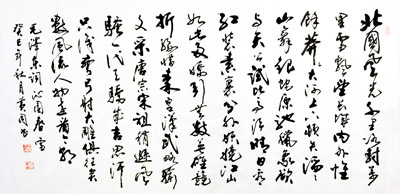 北國風光千里冰封萬
里雪飘望长城内外惟
餘莽莽大河上下顿失滔滔
山舞银蛇原驰蜡象欲
与天公试比高须晴日看
红装素裹分外妖娆江山
如此多娇引无数英雄竞
折腰惜秦皇汉武略输
文采唐宗宋祖稍逊风
骚一代天骄成吉思汗
只识弯弓射大雕俱往矣
数风流人物还看今朝
毛泽东词沁园春雪
癸巳年秋月